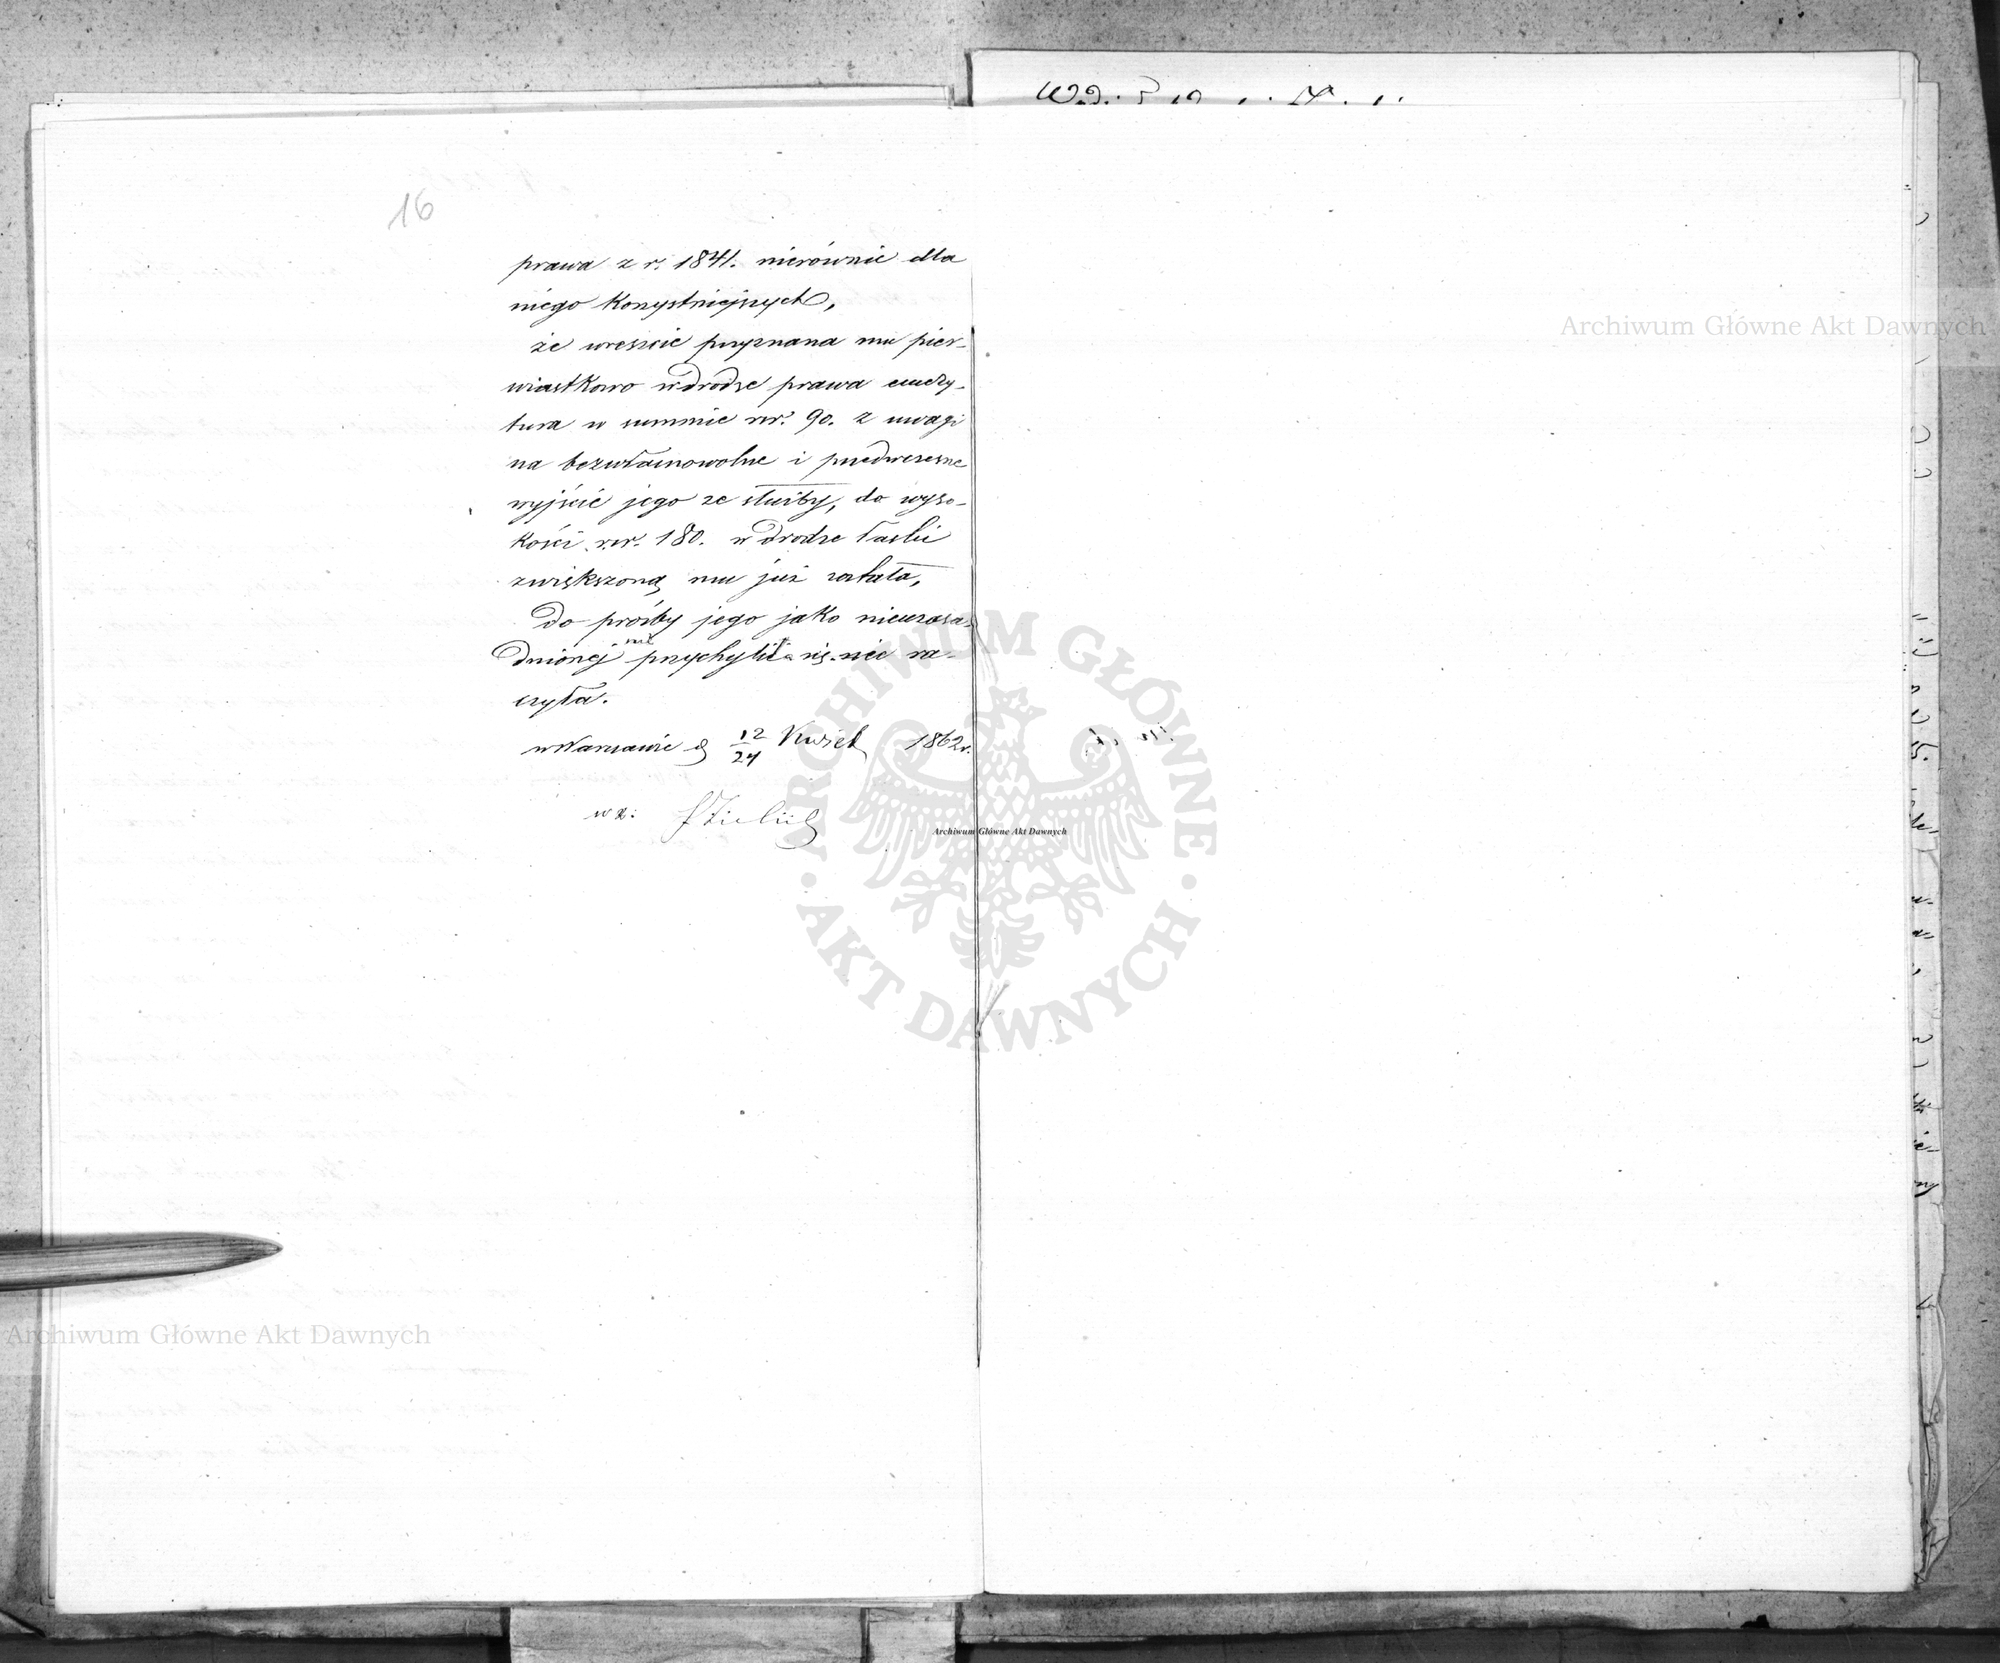 16
prawa z r. 1841. nierównie dla
niego korzystniejszych,
że wreszcie przyznana mu pier-
wiastkowo w drodze prawa emery-
tura w summie rsr. 90. z uwagi
na bezwłasnowolne i przedwczesne
wyjście jego ze służby, do wyso-
kości rsr. 180. w drodze łaski
zwiększoną mu już została,
do prośby jego jako nieuzasa-
dnionej nie przychylić się nie ra-
czyła.
w Warszawie d 12/24 Kwiet 1862 r.
w z:
Archiwum Główne Akt Dawnych
Archiwum Główne Akt Dawnych
ARCHIWUM GŁÓWNE AKT DAWNYCH
Archiwum Główne Akt Dawnych